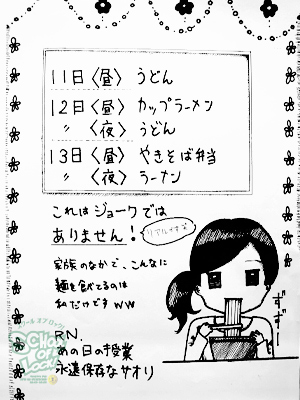 11日〈昼〉うどん
12日〈昼〉カップラーメン
〃〈夜〉うどん
13日〈昼〉やきそば弁当
〃〈夜〉ラーメン
これはジョークでは
ありません!
家族のなかで、こんなに
麺を食べてるのは
私だけですww
ずずー
R.N.
あの日の授業
永遠保存なサオリ